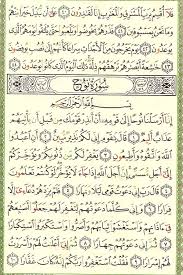 فَلَآ أُقۡسِمُ بِرَبِّ ٱلۡمَشَٰرِقِ وَٱلۡمَغَٰرِبِ إِنَّا لَقَٰدِرُونَ ٤٠ عَلَىٰٓ أَن نُّبَدِّلَ خَيۡرٗا
مِّنۡهُمۡ وَمَا نَحۡنُ بِمَسۡبُوقِينَ ٤١ فَذَرۡهُمۡ يَخُوضُواْ وَيَلۡعَبُواْ حَتَّىٰ يُلَٰقُواْ
يَوۡمَهُمُ ٱلَّذِي يُوعَدُونَ ٤٢ يَوۡمَ يَخۡرُجُونَ مِنَ ٱلۡأَجۡدَاثِ سِرَاعٗا كَأَنَّهُمۡ إِلَىٰ نُصُبٖ يُوفِضُونَ ٤٣
خَٰشِعَةً أَبۡصَٰرُهُمۡ تَرۡهَقُهُمۡ ذِلَّةٞۚ ذَٰلِكَ ٱلۡيَوۡمُ ٱلَّذِي كَانُواْ يُوعَدُونَ ٤٤
سُورَةُ نُوحٍ
بِسۡمِ ٱللَّهِ ٱلرَّحۡمَٰنِ ٱلرَّحِيمِ
إِنَّآ أَرۡسَلۡنَا نُوحًا إِلَىٰ قَوۡمِهِۦٓ أَنۡ أَنذِرۡ قَوۡمَكَ مِن قَبۡلِ أَن يَأۡتِيَهُمۡ
عَذَابٌ أَلِيمٞ ١ قَالَ يَٰقَوۡمِ إِنِّي لَكُمۡ نَذِيرٞ مُّبِينٌ ٢ أَنِ ٱعۡبُدُواْ
ٱللَّهَ وَٱتَّقُوهُ وَأَطِيعُونِ ٣ يَغۡفِرۡ لَكُم مِّن ذُنُوبِكُمۡ وَيُؤَخِّرۡكُمۡ
إِلَىٰٓ أَجَلٖ مُّسَمًّىۚ إِنَّ أَجَلَ ٱللَّهِ إِذَا جَآءَ لَا يُؤَخَّرُۚ لَوۡ كُنتُمۡ تَعۡلَمُونَ ٤
قَالَ رَبِّ إِنِّي دَعَوۡتُ قَوۡمِي لَيۡلٗا وَنَهَارٗا ٥ فَلَمۡ يَزِدۡهُمۡ دُعَآءِيٓ إِلَّا
فِرَارٗا ٦ وَإِنِّي كُلَّمَا دَعَوۡتُهُمۡ لِتَغۡفِرَ لَهُمۡ جَعَلُوٓاْ أَصَٰبِعَهُمۡ
فِيٓ ءَاذَانِهِمۡ وَٱسۡتَغۡشَوۡاْ ثِيَابَهُمۡ وَأَصَرُّواْ وَٱسۡتَكۡبَرُواْ ٱسۡتِكۡبَارٗا ٧
ثُمَّ إِنِّي دَعَوۡتُهُمۡ جِهَارٗا ٨ ثُمَّ إِنِّيٓ أَعۡلَنتُ لَهُمۡ وَأَسۡرَرۡتُ
لَهُمۡ إِسۡرَارٗا ٩ فَقُلۡتُ ٱسۡتَغۡفِرُواْ رَبَّكُمۡ إِنَّهُۥ كَانَ غَفَّارٗا ١٠